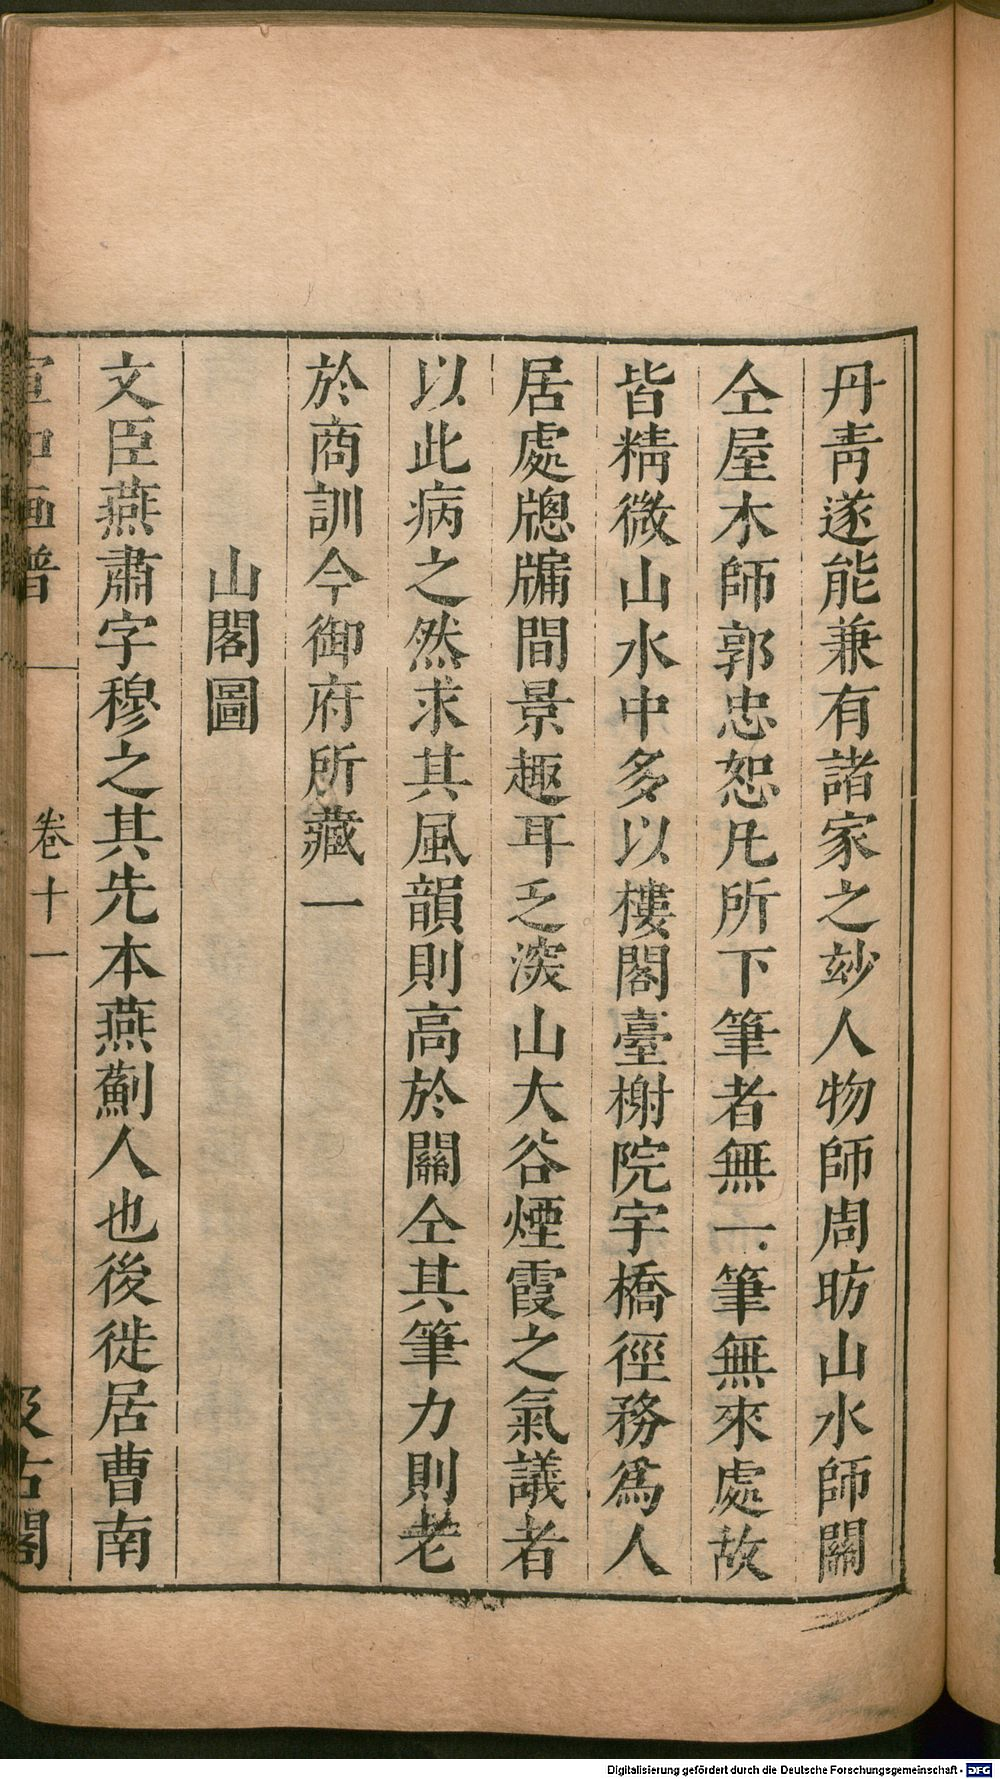 丹青遂能兼有諸家之妙人物師周昉山水師關
仝屋木師郭忠恕凡所下筆者無一筆無來處故
皆精微山水中多以樓閣臺榭院宇橋徑務爲人
居處牕牖間景趣耳乏深山大谷煙霞之氣議者
以此病之然求其風韻則高於關仝其筆力則老
於商訓今御府所藏一
山閣圖
文臣燕肅字穆之其先本燕薊人也後徙居曹南
宣和画譜
卷十一
汲古閣
Digitalisierung gefördert durch die Deutsche Forschungsgemeinschaft - DFG